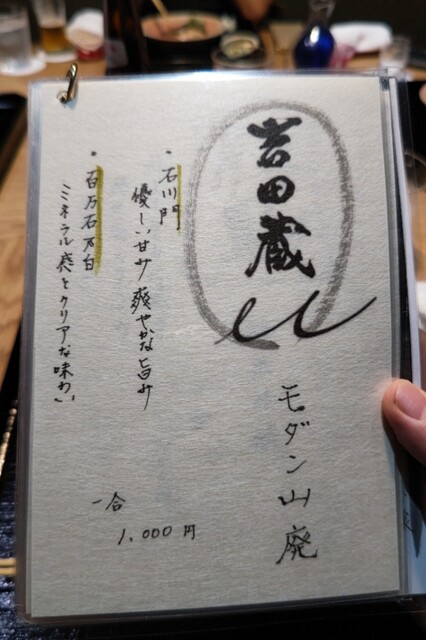 吉田蔵
u
モダン山廃
・石川門
優しい甘み 爽やかな旨み
・百万石乃白
ミネラル感とクリアな味わい
一合
1,000円